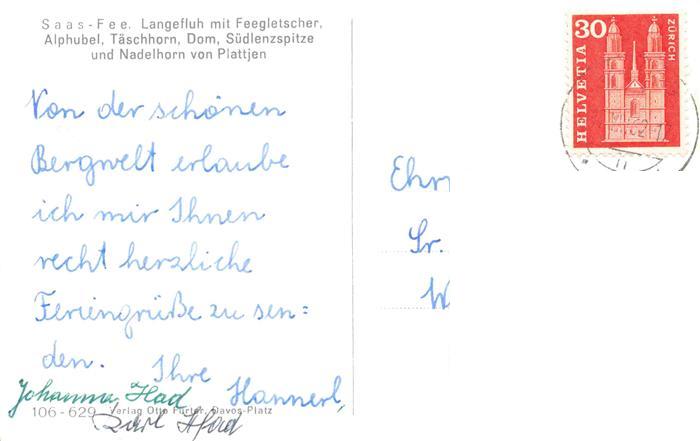 Saas-Fee. Langefluh mit Feegletscher,
Alphubel, Täschhorn, Dom, Südlenzspitze
und Nadelhorn von Plattjen
HELVETIA 30 ZÜRICH
Von der schönen
Bergwelt erlaube
ich mir Ihnen
recht herzliche
Feriengrüße zu sen=
den. Ihre
Hannerl,
Johanna, Had
106-629 Verlag Otto Furter, Davos-Platz
Ehr
Sr.
W